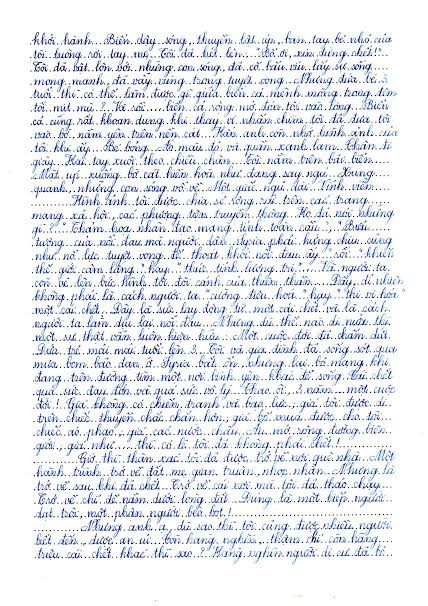 khởi hành. Biển dậy sóng, thuyền lật úp, bàn tay bé nhỏ của
tôi tuông rơi tay mẹ. Tôi đã hét lên: "Bố ơi, xin đừng chết!"
Tôi đã bất tồn bởi những con sóng, đã cố bấu víu lấy sự sống
mong manh, đã vẫy vùng trong tuyệt vọng. Nhưng đứa bé 3
tuổi thì có thể làm được gì giữa biển cả mênh mông trong đêm
tối mịt mù? Và rồi... biển cả rộng mở đón tôi vào lòng. Biển
cả cũng rất khoan dung khi thay vì nhấn chìm tôi đã đưa tôi
vào bờ nằm yên trên nền cát. Hẳn anh còn nhớ hình ảnh của
tôi khi ấy. Bé bỏng. Áo màu đỏ và quần xanh lam. Chân đi
giày. Hai tay xuôi theo chiều chân. Tôi nằm trên bãi biển.
Mặt úp xuống bờ cát hiền hòa như đang say ngủ. Xung
quanh, những con sóng vỗ về. Một giấc ngủ dài. Vĩnh viễn.
Hình ảnh tôi được chia sẻ rộng rãi trên các trang
mạng xã hội, các phương tiện truyền thông. Họ đã nói những
gì? "Thảm họa nhân tạo mang tính toàn cầu", "Biểu
tượng của nỗi đau mà người dân Syria phải hứng chịu cùng
như nỗ lực tuyệt vọng để thoát khỏi nỗi đau ấy" rồi "khiến
thế giới câm lặng" hay "thức tỉnh lương tri"... Và người ta
còn vẽ lên bức hình tôi đôi cánh của thiên thần. Đấy, dĩ nhiên
không phải là cách người ta "cường điệu hóa" hay "thi vị hóa"
một cái chết. Đấy là sức lay động từ một cái chết và là cách
người ta làm dịu lại nỗi đau. Nhưng dù thế nào đi nữa thì
một sự thật vẫn hiện hữu: Một cuộc đời đã chấm dứt.
Đứa trẻ mãi mãi tuổi lên 3. Tôi và gia đình đã sống sót qua
mưa bom bão đạn ở Syria bất ổn nhưng lại bỏ mạng khi
đang trên đường tìm một nơi bình yên khác để sống. Cái chết
quá sức đau đớn và quá sức vô lý. Chao ơi, 3 năm một cuộc
đời! Giá không có chiến tranh và bạo lực, giá tôi được đi
trên chiếc thuyền chắc chắn hơn, giá bố mua được cho tôi
chiếc áo phao, giá các nước châu Âu mở rộng đường biên
giới, giá như... thì có lẽ tôi đã không phải chết!
Giờ thì thân xác tôi đã được trở về nơi quê nhà. Một
hành trình trở về đất mẹ gian truân, nhọc nhằn. Nhưng là
trở về sau khi đã chết. Trở về cái nơi mà tôi đã tháo chạy.
Trở về chỉ để nằm dưới lòng đất. Đúng là một kiếp người
dạt trôi, một phận người bèo bọt!
Nhưng anh ạ, dù sao thì tôi cũng được nhiều người
biết đến, được an ủi. Còn hàng nghìn, thậm chí còn hàng
triệu cái chết khác thì sao? Hàng nghìn người di cư đã bỏ